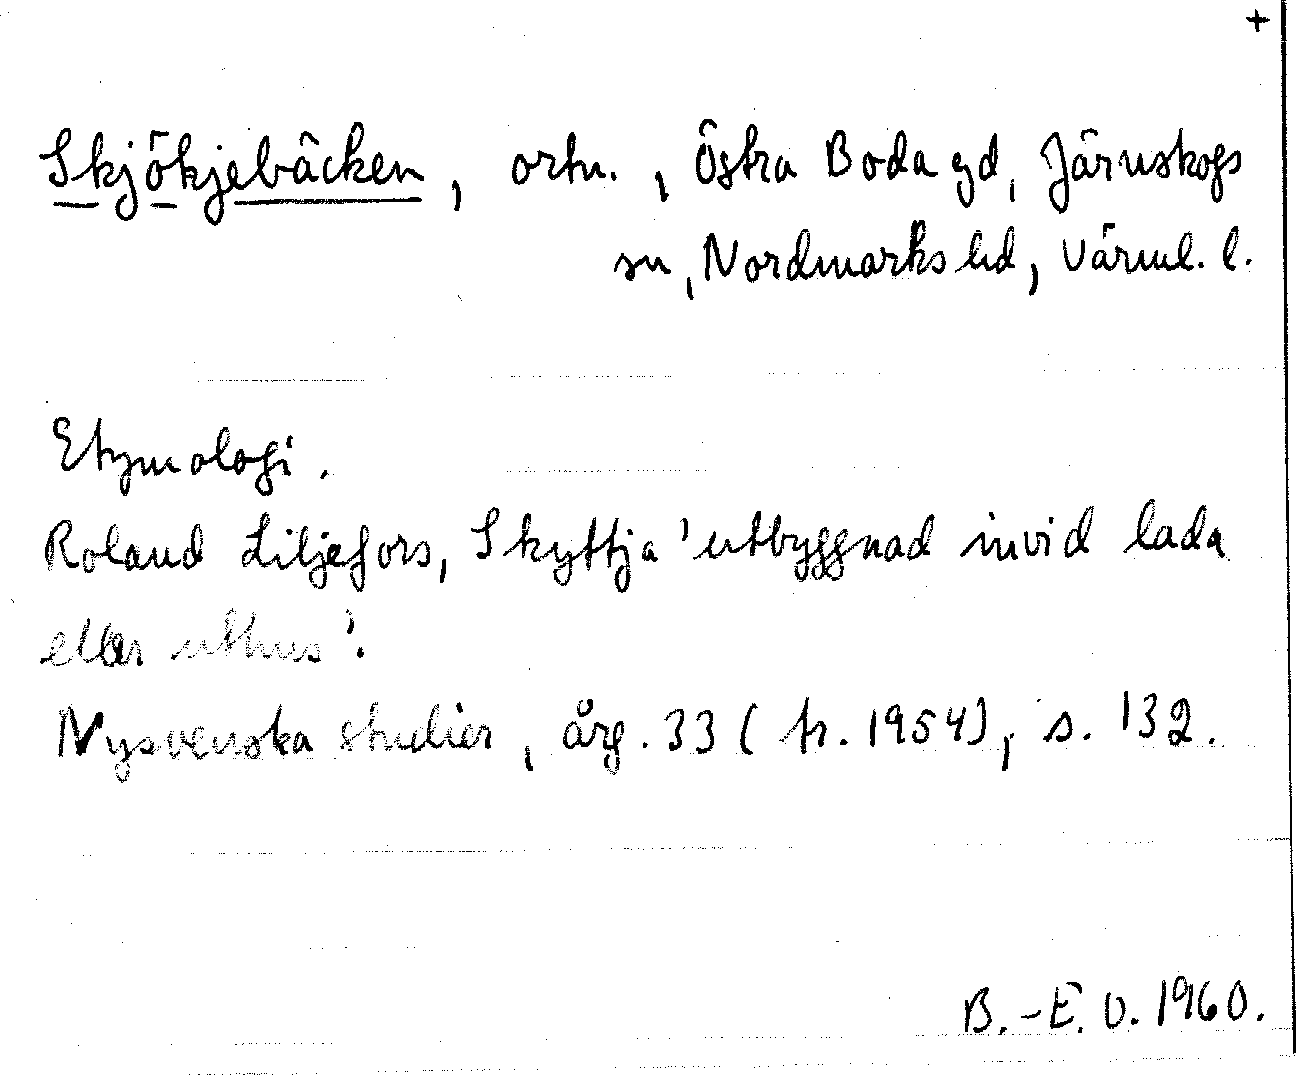 +
Skjökjebäcken, ortn., Östra Boda gd, Järnskogs
sn, Nordmarks hd, Värml. l.
Etymologi.
Roland Liljefors, Skyttja 'utbyggnad invid lada
eller uthus'.
Nysvenska studier, årg. 33 (tr. 1954), s. 132.
B.-E. O. 1960.